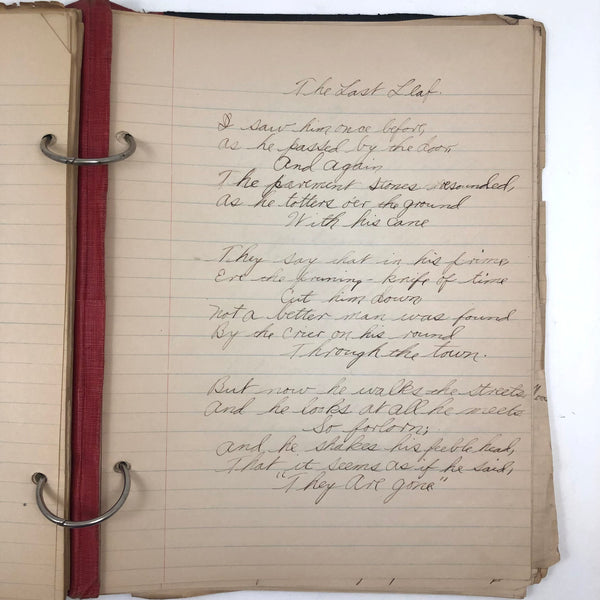 The Last Leaf.
I saw him once before,
as he passed by the door,
And again
The pavement stones resounded,
as he totters over the ground
With his cane
They say that in his prime,
Ere the pruning-knife of time
Cut him down
Not a better man was found
By the Crier on his round
Through the town.
But now he walks the streets,
And he looks at all he meets
So forlorn;
and he shakes his feeble head,
That it seems as if he said,
"They Are gone"